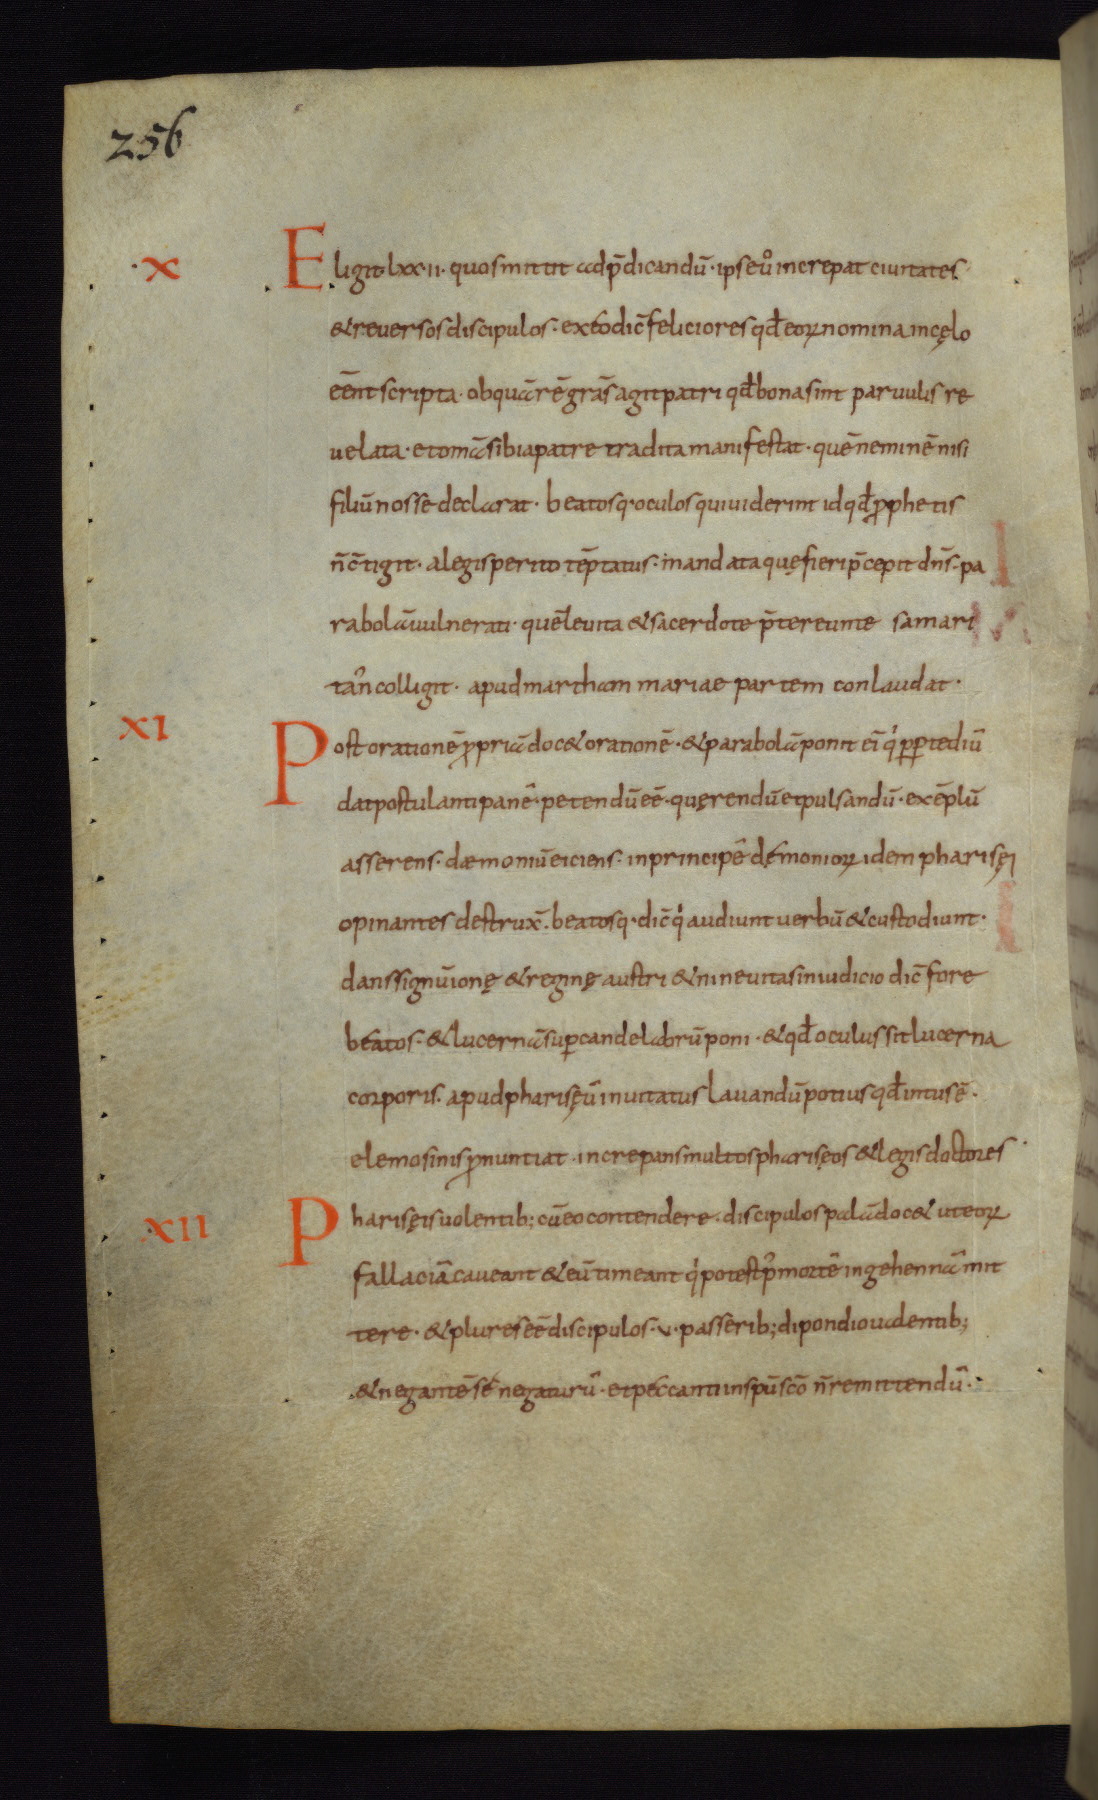 256
·X Eligit lxx·ii· quos mittit ad p̄dicandū· ipse uͦ increpat ciuitates·
& reuersos discipulos· ex eo dic̄ feliciores qđ eoꝝ nomina in cęlo
eēnt scripta· ob quā rē grās agit patri qđ bona sint paruulis re
uelata· et om̄a sibi a patre tradita manifestat· quē neminē nisi
filiū nosse declarat· beatosq· oculos qui uiderint id qđ ꝓphetis
n̄ c̄tigit· a legis perito tēptatus· mandata quę fieri p̄cepit dn̄s· pa
rabolā uulnerati· quē leuita & sacerdote p̄tereunte samari
tan᾽ colligit· apud martham mariae partem conlaudat·
XI Post orationē ꝓpriā doc& orationē· & parabolā ponit ei᾽ qͥ ꝑ tediū
dat postulanti panē· petendū eē· quęrendū et pulsandū· exēplū
asserens· dæmoniū eiciens· in principē démonioꝝ idem pharisęi
opinantes destrux̄· beatosq· dic̄ qͥ audiunt uerbū & custodiunt·
dans signū ionę & reginę austri & nineuitas in iudicio dic̄ fore
beatos· & lucernā suꝑ candelabrū poni· & qđ oculus sit lucerna
corporis· apud pharisęū inuitatus lauandū potius qđ intus ē·
elemosinis ꝓnuntiat· increpans multos phariseos & legis doctores·
·XII Pharisęis uolentib; cū eo contendere· discipulos palā doc& ut eoꝝ
fallaciā caueant & eū timeant qͥ potest p᾽ mortē in gehennā mit
tere· & plures eē discipulos· v· passerib; dipondio uadentib;
& negantē se negaturū· et peccanti in spū sc̄o n̄ remittendū·